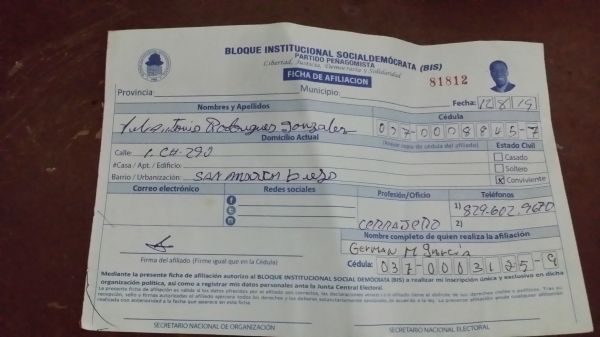 BLOQUE INSTITUCIONAL SOCIALDEMÓCRATA (BIS)
PARTIDO PEÑAGOMISTA
Libertad, Justicia, Democracia y Solidaridad
FICHA DE AFILIACION
81812
Provincia
Municipio:
Fecha: 12 8 19
Nombres y Apellidos
Cédula
Antonio Rodrigues Gonzales
037-0008845-7
Domicilio Actual
(Anexar copia de cédula del afiliado)
Calle: 1. CH-290
Estado Civil
#Casa / Apt. / Edificio:
Casado
Soltero
Barrio / Urbanización: SAN MARCO
x Conviviente
Correo electrónico
Redes sociales
Profesión/Oficio
Teléfonos
1) 829-602.9620
CERRAJERO
2)
Nombre completo de quien realiza la afiliación
GERMAN M García
Firma del afiliado (Firme igual que en la Cédula)
Cédula: 037-0003125-9
Mediante la presente ficha de afiliación autorizo al BLOQUE INSTITUCIONAL SOCIAL DEMÓCRATA (BIS) a realizar mi inscripción única y exclusiva en dicha
organización política, así como a registrar mis datos personales ante la Junta Central Electoral.
SECRETARIO NACIONAL DE ORGANIZACIÓN
SECRETARIO NACIONAL ELECTORAL